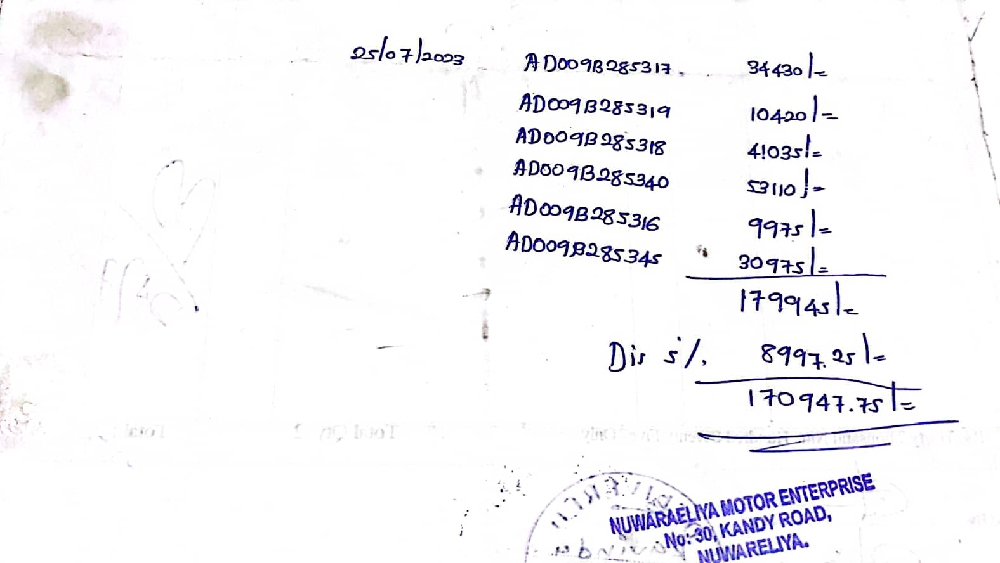 25/07/2023 AD009B285317. 34430/=
AD009B285319 10420/=
AD009B285318 41035/=
AD009B285340 53110/=
AD009B285316 9975/=
AD009B285345 30975/=
179945/=
Dis 5%. 8997.25/=
170947.75/=
Total Qty 2 Total
NUWARAELIYA MOTOR ENTERPRISE
No:-30, KANDY ROAD,
NUWARELIYA.